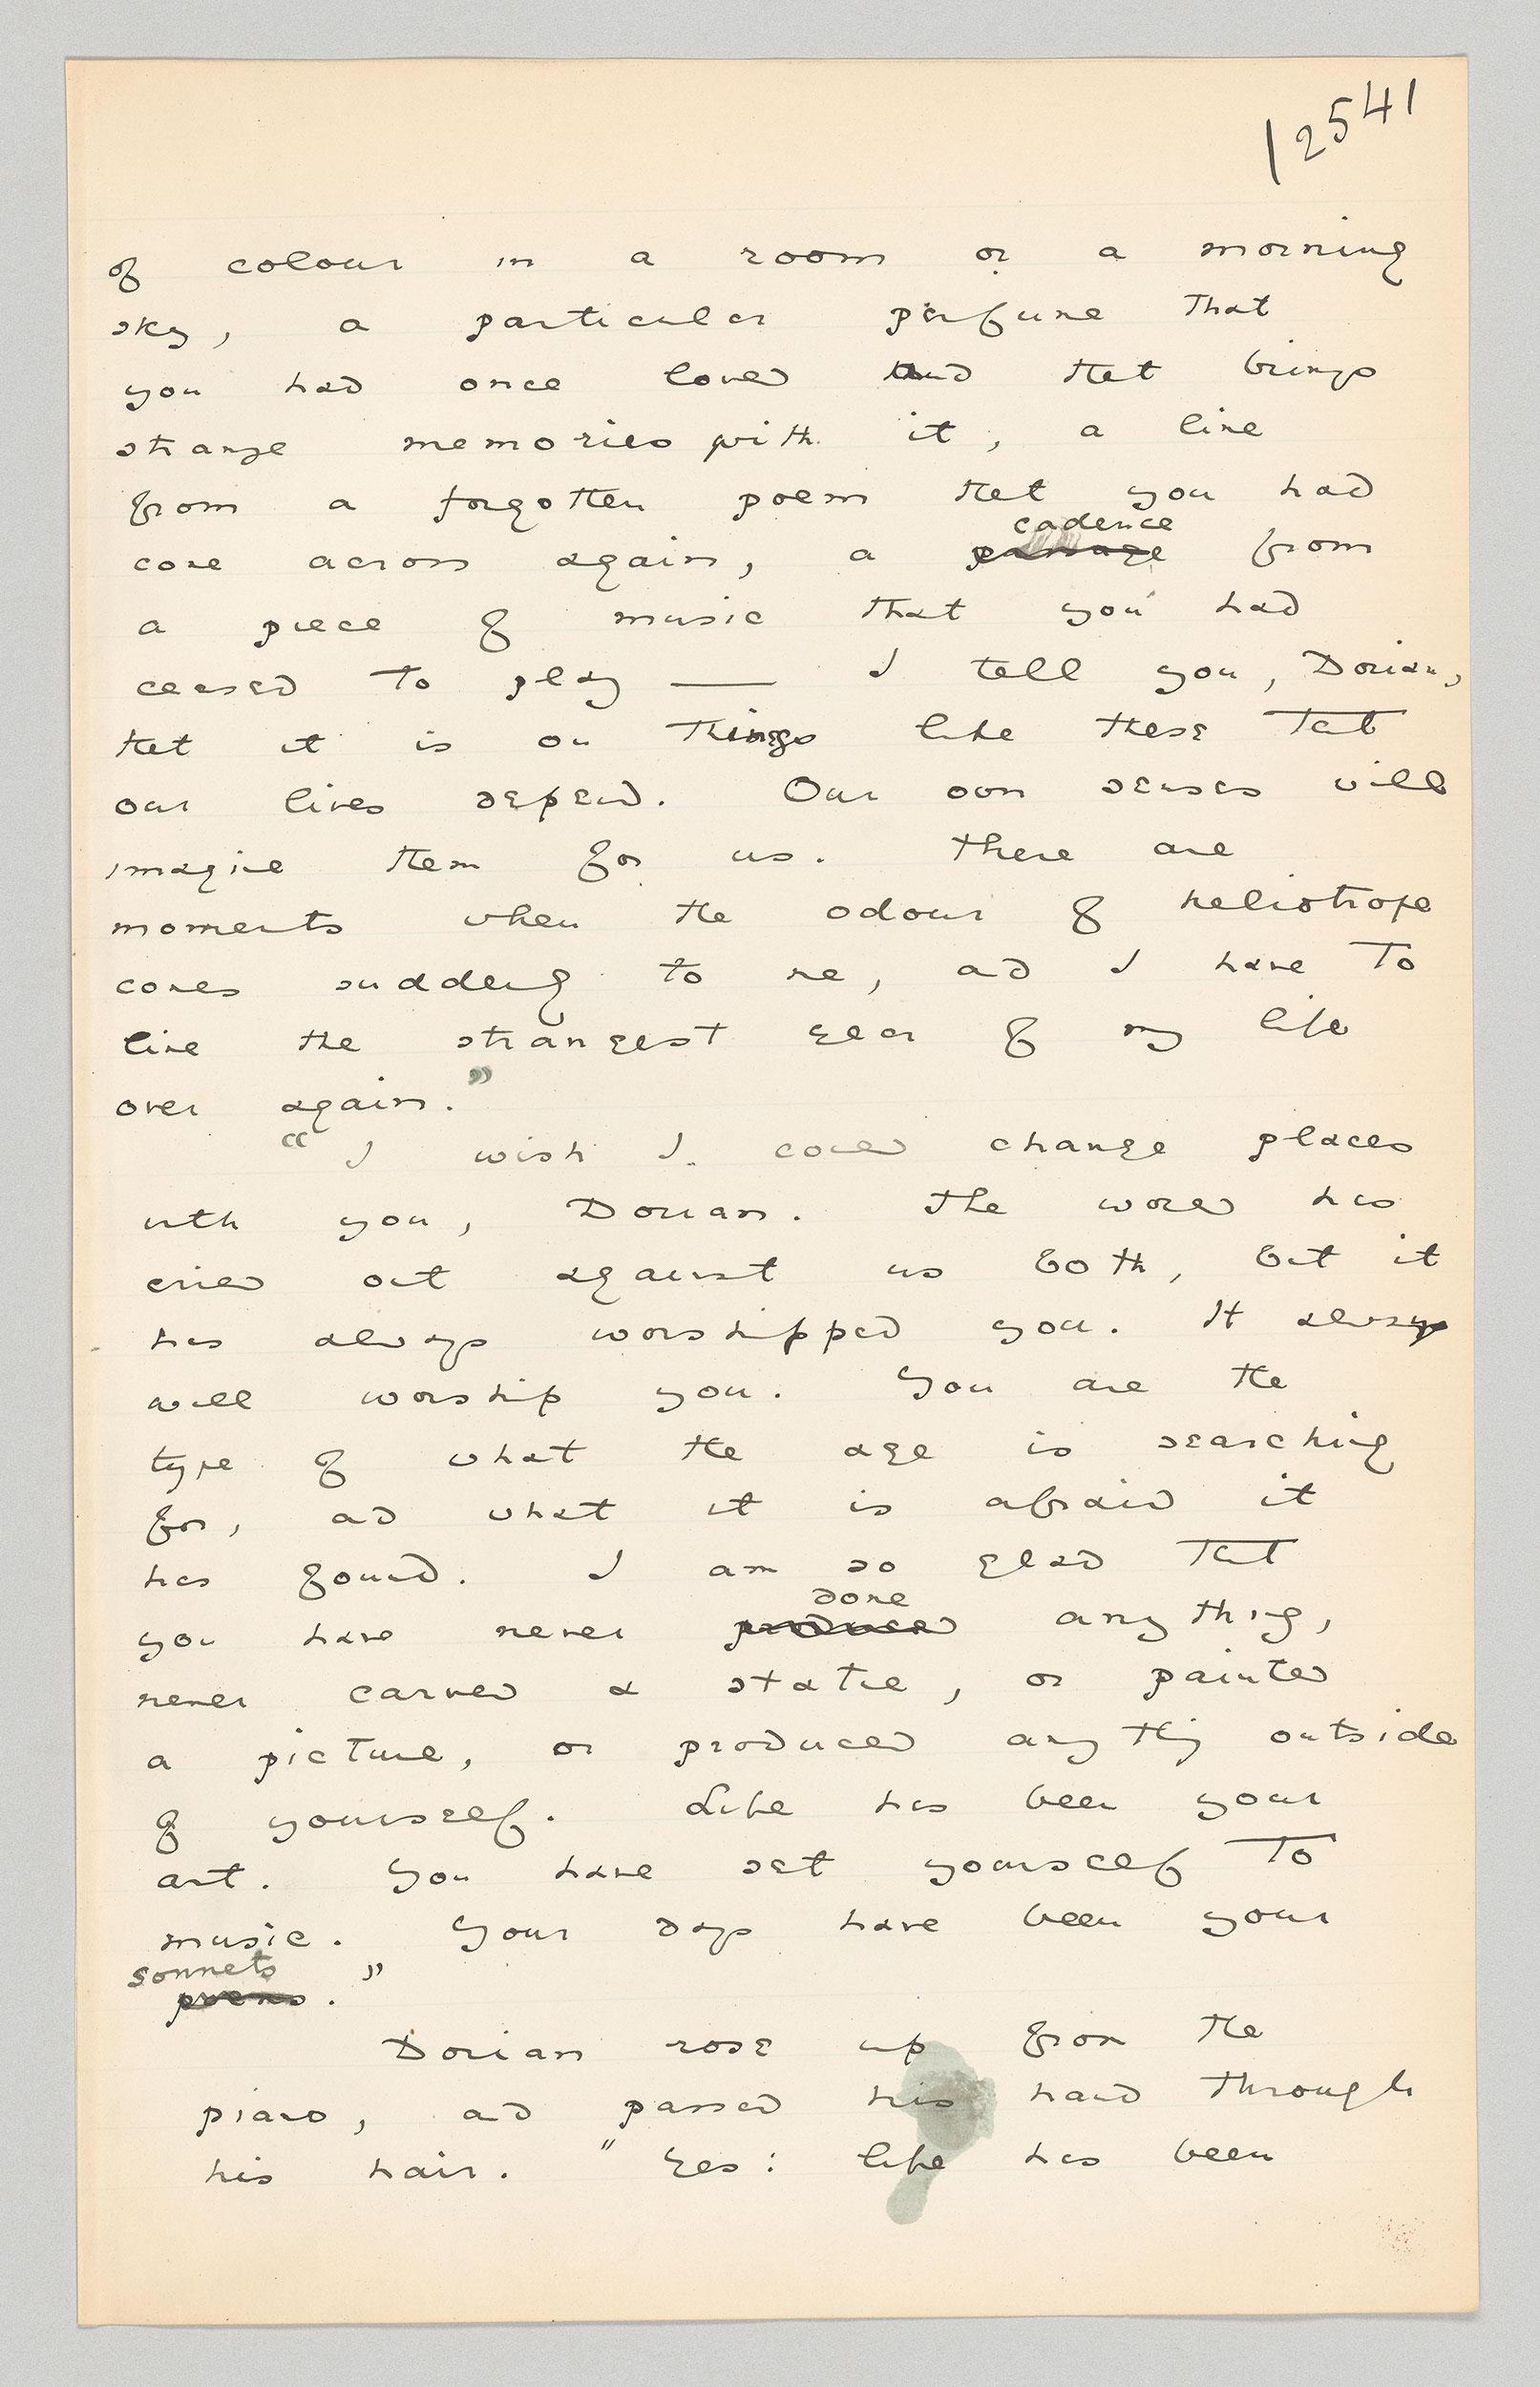 12541
of colour in a room or a morning
sky, a particular perfume that
you had once loved and that brings
strange memories with it, a line
from a forgotten poem that you had
cadence
come across again, a passage from
a piece of music that you had
ceased to play — I tell you, Dorian,
that it is on things like these that
our lives depend. Our own senses will
imagine them for us. There are
moments when the odour of heliotrope
comes suddenly to me, and I have to
live the strangest year of my life
over again."
"I wish I could change places
with you, Dorian. The world has
cried out against us both, but it
has always worshipped you. It always
will worship you. You are the
type of what the age is searching
for, and what it is afraid it
has found. I am so glad that
done
you have never produced anything,
never carved a statue, or painted
a picture, or produced anything outside
of yourself. Life has been your
art. You have set yourself to
music. Your days have been your
sonnets "
poems.
Dorian rose up from the
piano, and passed his hand through
his hair. "Yes: life has been